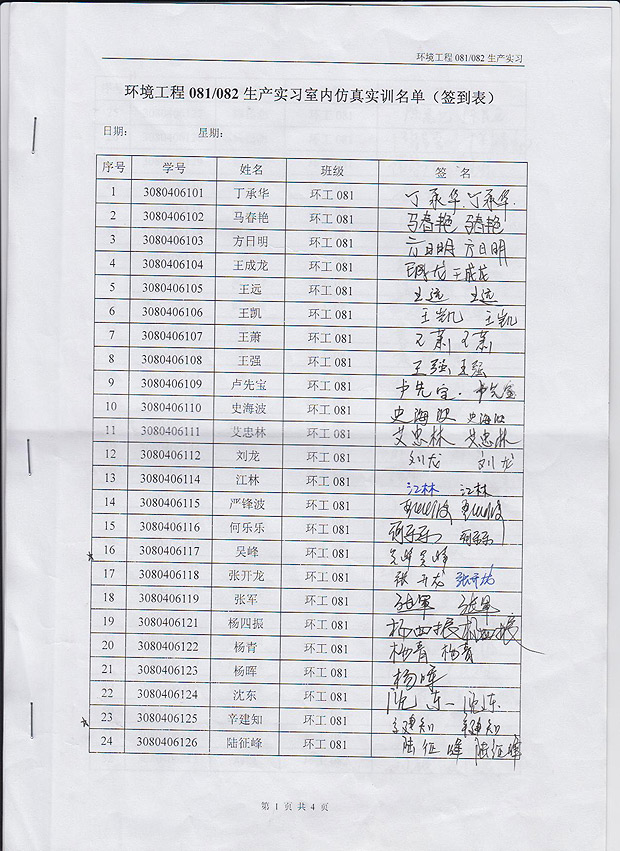 环境工程 081/082 生产实习
环境工程 081/082 生产实习室内仿真实训名单（签到表）
日期： 星期：
序号 学号 姓名 班级 签 名
1 3080406101 丁承华 环工 081 丁承华.丁承华.
2 3080406102 马春艳 环工 081 马春艳 马春艳
3 3080406103 方日明 环工 081 方日明 方日明
4 3080406104 王成龙 环工 081 王成龙 王成龙
5 3080406105 王远 环工 081 王远 王远
6 3080406106 王凯 环工 081 王凯 王凯
7 3080406107 王萧 环工 081 王萧 王萧
8 3080406108 王强 环工 081 王强 王强
9 3080406109 卢先宝 环工 081 卢先宝. 卢先宝
10 3080406110 史海波 环工 081 史海波 史海波
11 3080406111 艾忠林 环工 081 艾忠林 艾忠林
12 3080406112 刘龙 环工 081 刘龙 刘龙
13 3080406114 江林 环工 081 江林 江林
14 3080406115 严锋波 环工 081
15 3080406116 何乐乐 环工 081 何乐乐 何乐乐
16 3080406117 吴峰 环工 081 吴峰 吴峰
17 3080406118 张开龙 环工 081 张开龙 张开龙
18 3080406119 张军 环工 081 张军 张军
19 3080406121 杨四振 环工 081 杨四振 杨四振
20 3080406122 杨青 环工 081 杨青 杨青
21 3080406123 杨晖 环工 081 杨晖
22 3080406124 沈东 环工 081 沈东 沈东
23 3080406125 辛建知 环工 081 辛建知 辛建知
24 3080406126 陆征峰 环工 081 陆征峰 陆征峰
第 1 页 共 4 页